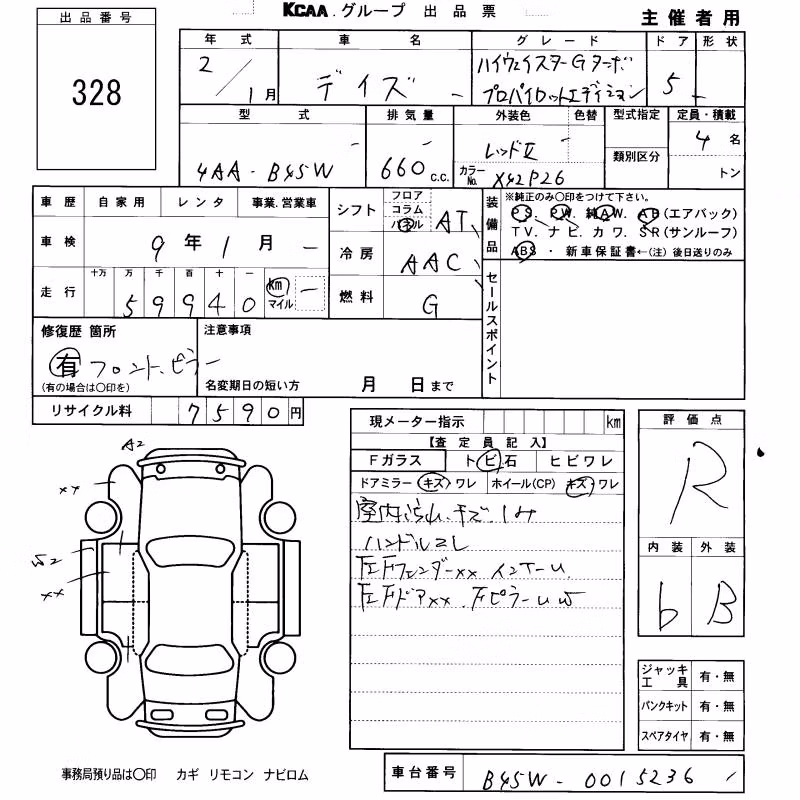 KCAA.グループ 出品票
主催者用
出品番号
328
年式 車名 グレード ドア 形状
2/1月 デイズ - ハイウェイスターGターボ 5 -
プロパイロットエディション
型式 排気量 外装色 色替 型式指定 定員・積載
4AA-B45W - 660c.c. - レッドII - 4名
カラーNo. X42P26 類別区分 トン
車歴 自家用 レンタ 事業.営業車
車検 9年1月 -
走行 十万 万 千 百 十 一 km マイル
59940 -
シフト フロア コラム パネル AT
冷房 AAC
燃料 G
装備品 ※純正のみ○印をつけて下さい。
PS. PW. 純AW. AB(エアバック)
TV. ナビ. カワ. SR(サンルーフ)
ABS・新車保証書←(注)後日送りのみ
セールスポイント
修復歴 箇所
有 フロント、ピラー
(有の場合は○印を)
注意事項
名変期日の短い方 月 日まで
リサイクル料 7590円
現メーター指示 km
【査定員記入】
Fガラス トビ石 ヒビワレ
ドアミラー キズ ワレ ホイール(CP) キズ ワレ
室内
ハンドルコレ
左Fフェンダーxx インナーU
左FドアXX. FピラーU W
評価点
R
内装 外装
b B
A2
xx
W2
xx
ジャッキ工具 有・無
パンクキット 有・無
スペアタイヤ 有・無
事務局預り品は○印 カギ リモコン ナビロム
車台番号 B45W-0015236